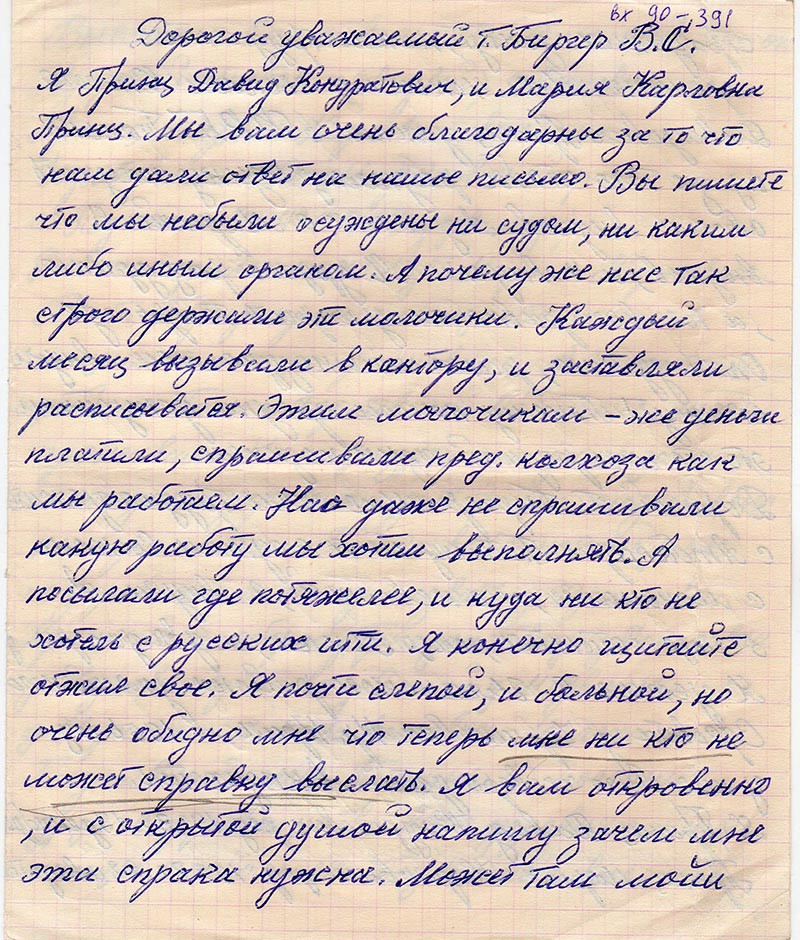 вх 90-391
Дорогой уважаемый т. Биргер В.С.
Я Принц Давид Кондратович, и Мария Карловна
Принц. Мы вам очень благодарны за то что
нам дали ответ на нашое письмо. Вы пишете
что мы небыли осуждены ни судом, ни каким
либо иным органом. А почему же нас так
строго держали эти молочики. Каждый
месяц вызывали в кантору, и заставляли
расписыватся. Этим молочикам – же деньги
платили, спрашивали пред. колхоза как
мы работаем. Нас даже не спрашивали
какую работу мы хотим выполнять. А
посылали где потяжелее, и куда ни кто не
хотель с русских итти. Я конечно щитайте
отжил свое. Я почти слепой, и больной, но
очень обидно мне что теперь мне ни кто не
может справку выслать. Я вам откровенно
, и с открытой душой напишу зачем мне
эта спрака нужна. Может там мойи